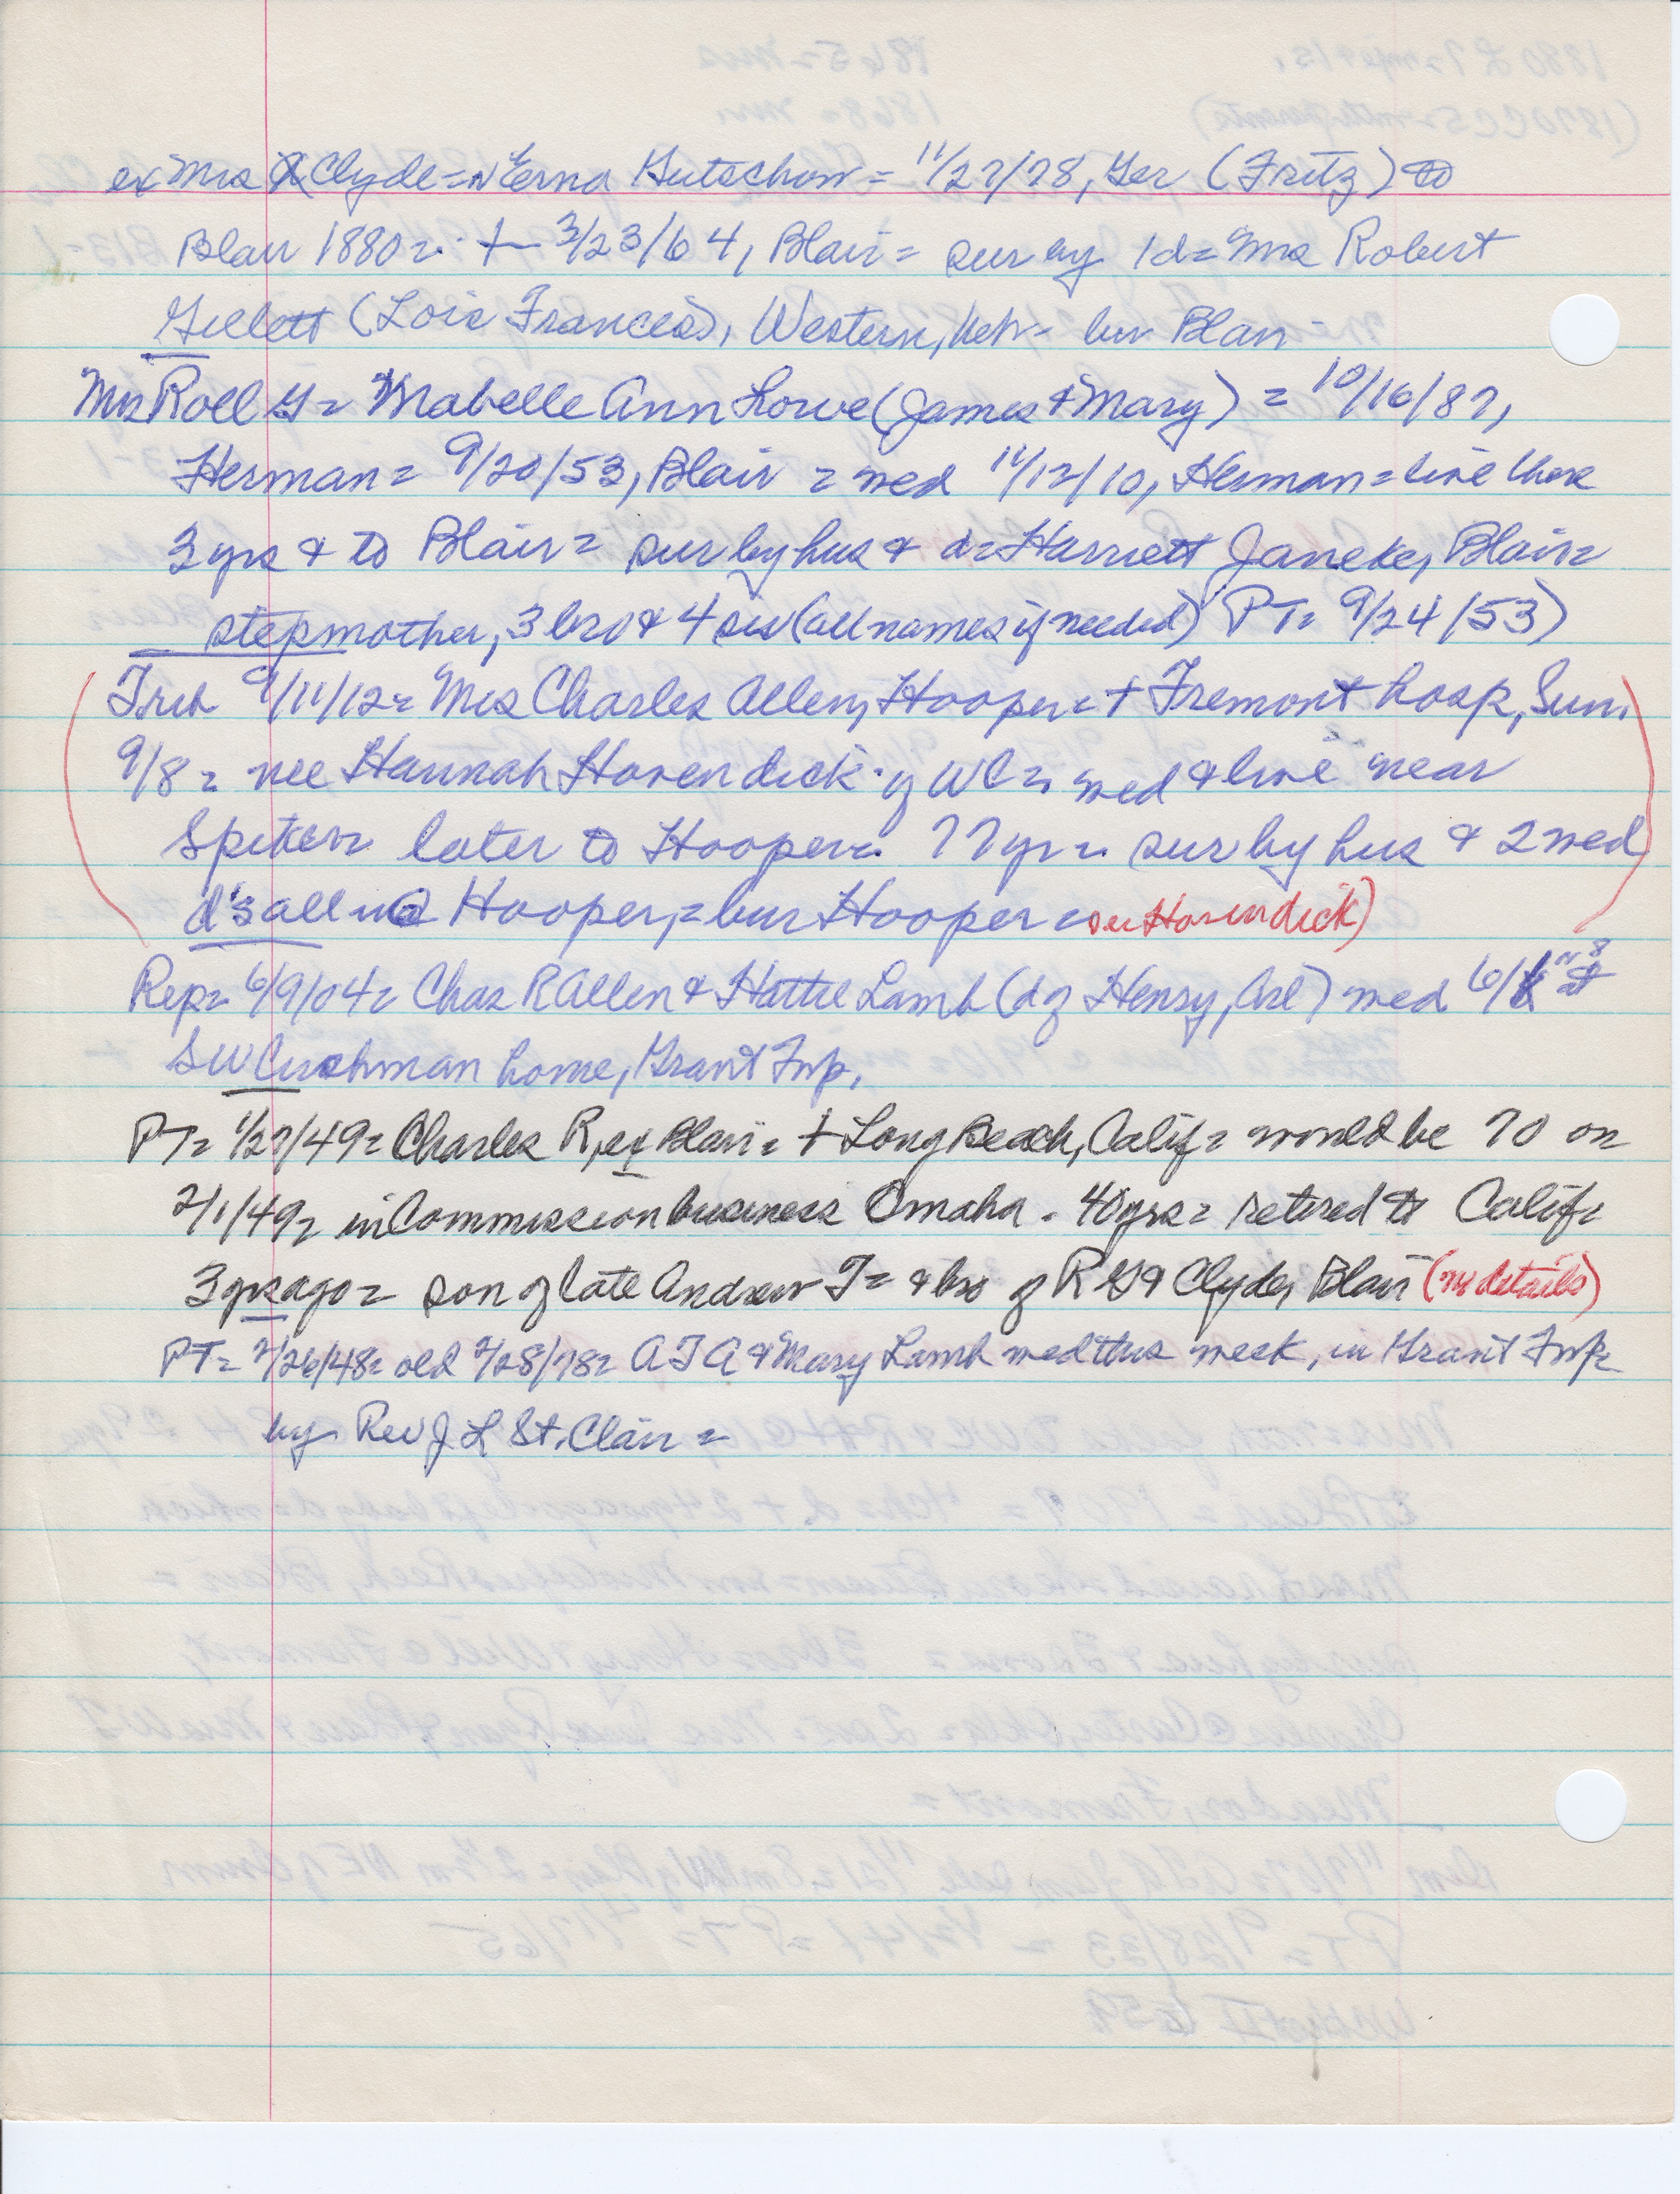 ex Mrs Clyde = N Erna Gutschow = 11/27/78, Ger (Fritz) to
Blair 1880 = + 3/23/64, Blair = sur by 1d = Mrs Robert
Gillett (Lois Frances), Western, Neb - bur Blair -
Mrs Roll G = Mabelle Ann Lowe (James + Mary) = 10/16/87,
Herman = 9/20/53, Blair = med 11/12/10, Herman = live there
3 yrs & to Blair = sur by hus & d = Harriett Janeke, Blair =
stepmother, 3 bro & 4 sis (all names if needed) PT = 9/24/53)
Trib 9/11/12 = Mrs Charles Allen, Hooper = + Fremont hosp, Sun.
9/8 = nee Hannah Horendick of WC = med & live near
Spiker = later to Hooper = 77 yr = sur by hus & 2 med
d's all @ Hooper, = bur Hooper = see Horendick)
Rep = 6/9/04 = Chas R Allen & Hattie Lamb (d of Henry, Arl) med 6/8
SW Cushman home, Grant Twp.
PT = 1/27/49 = Charles R, ex Blair = + Long Beach, Calif = would be 70 on
2/1/49 = in Commission business Omaha - 40 yrs = retired to Calif =
3 yrs ago = son of late Andrew T = & bro of R G & Clyde, Blair (no details)
PT = 2/26/48 = old 2/28/78 = A T A & Mary Lamb med this week, in Grant Twp =
by Rev J L St. Clair =